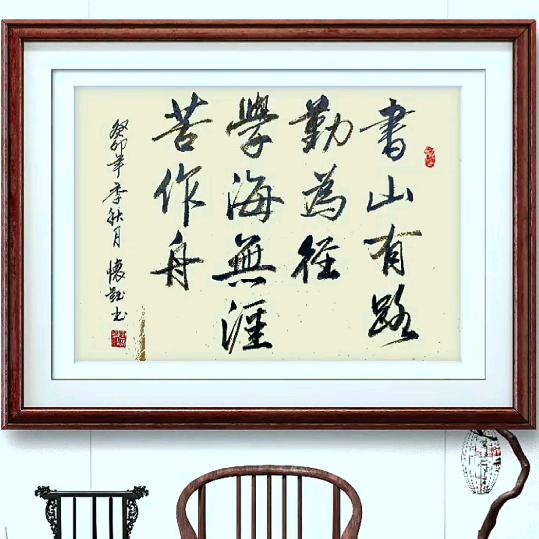 書山有路
勤為徑
學海無涯
苦作舟
癸卯年季秋月懷鈺书